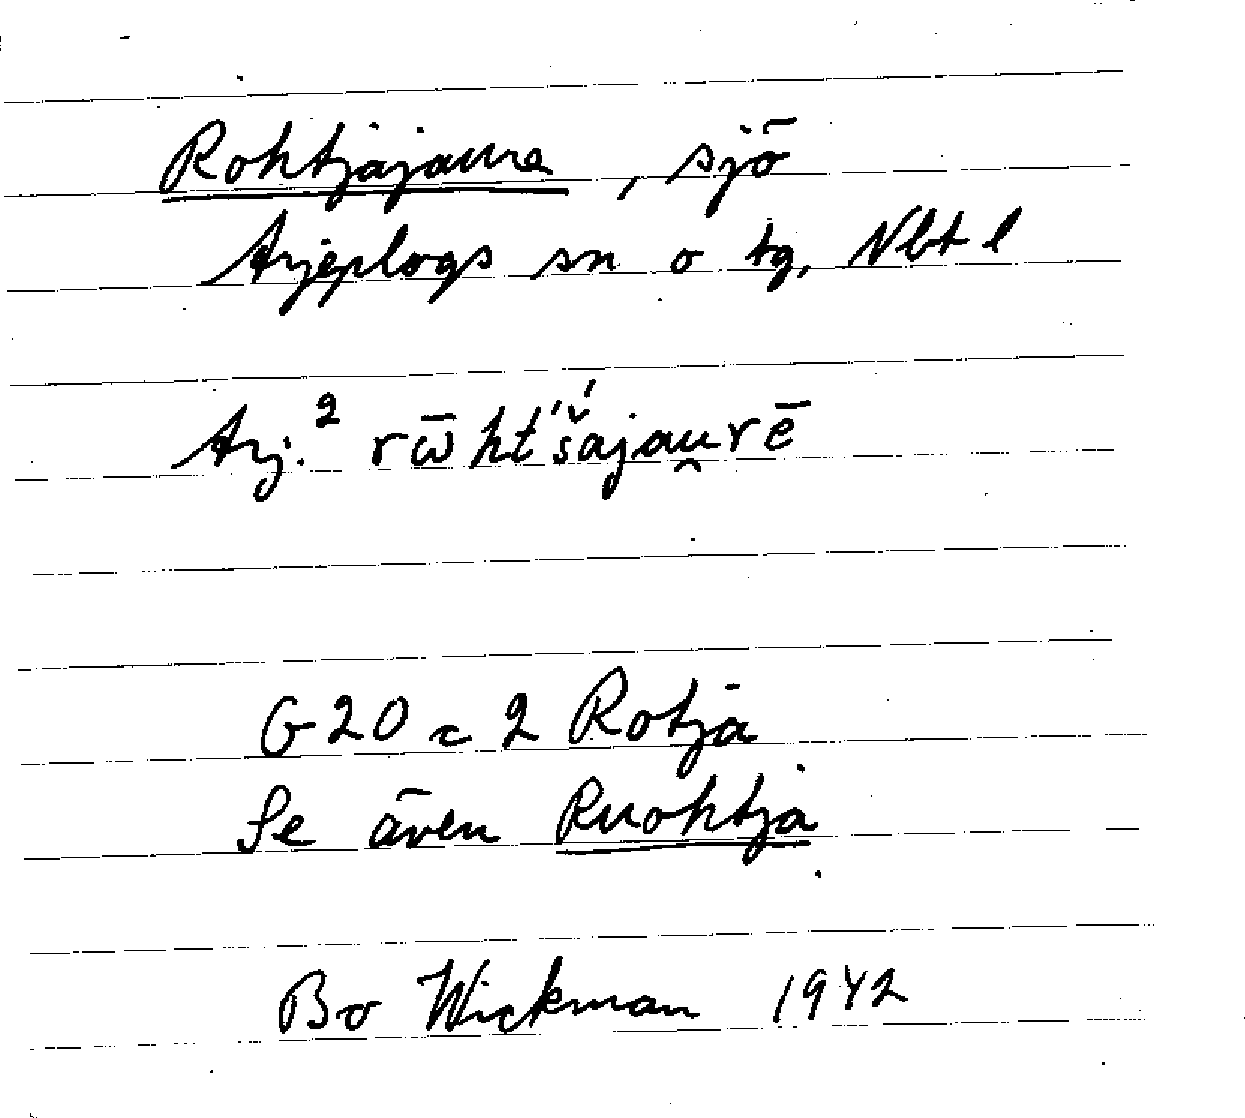 Rohtjajaure, sjö
Arjeplogs sn o tg, Nbt l
Arj.² rω̄ht́'š́ajau̯rē
G 20 c 2 Rotjä
Se även Ruohtja
Bo Wickman 1942